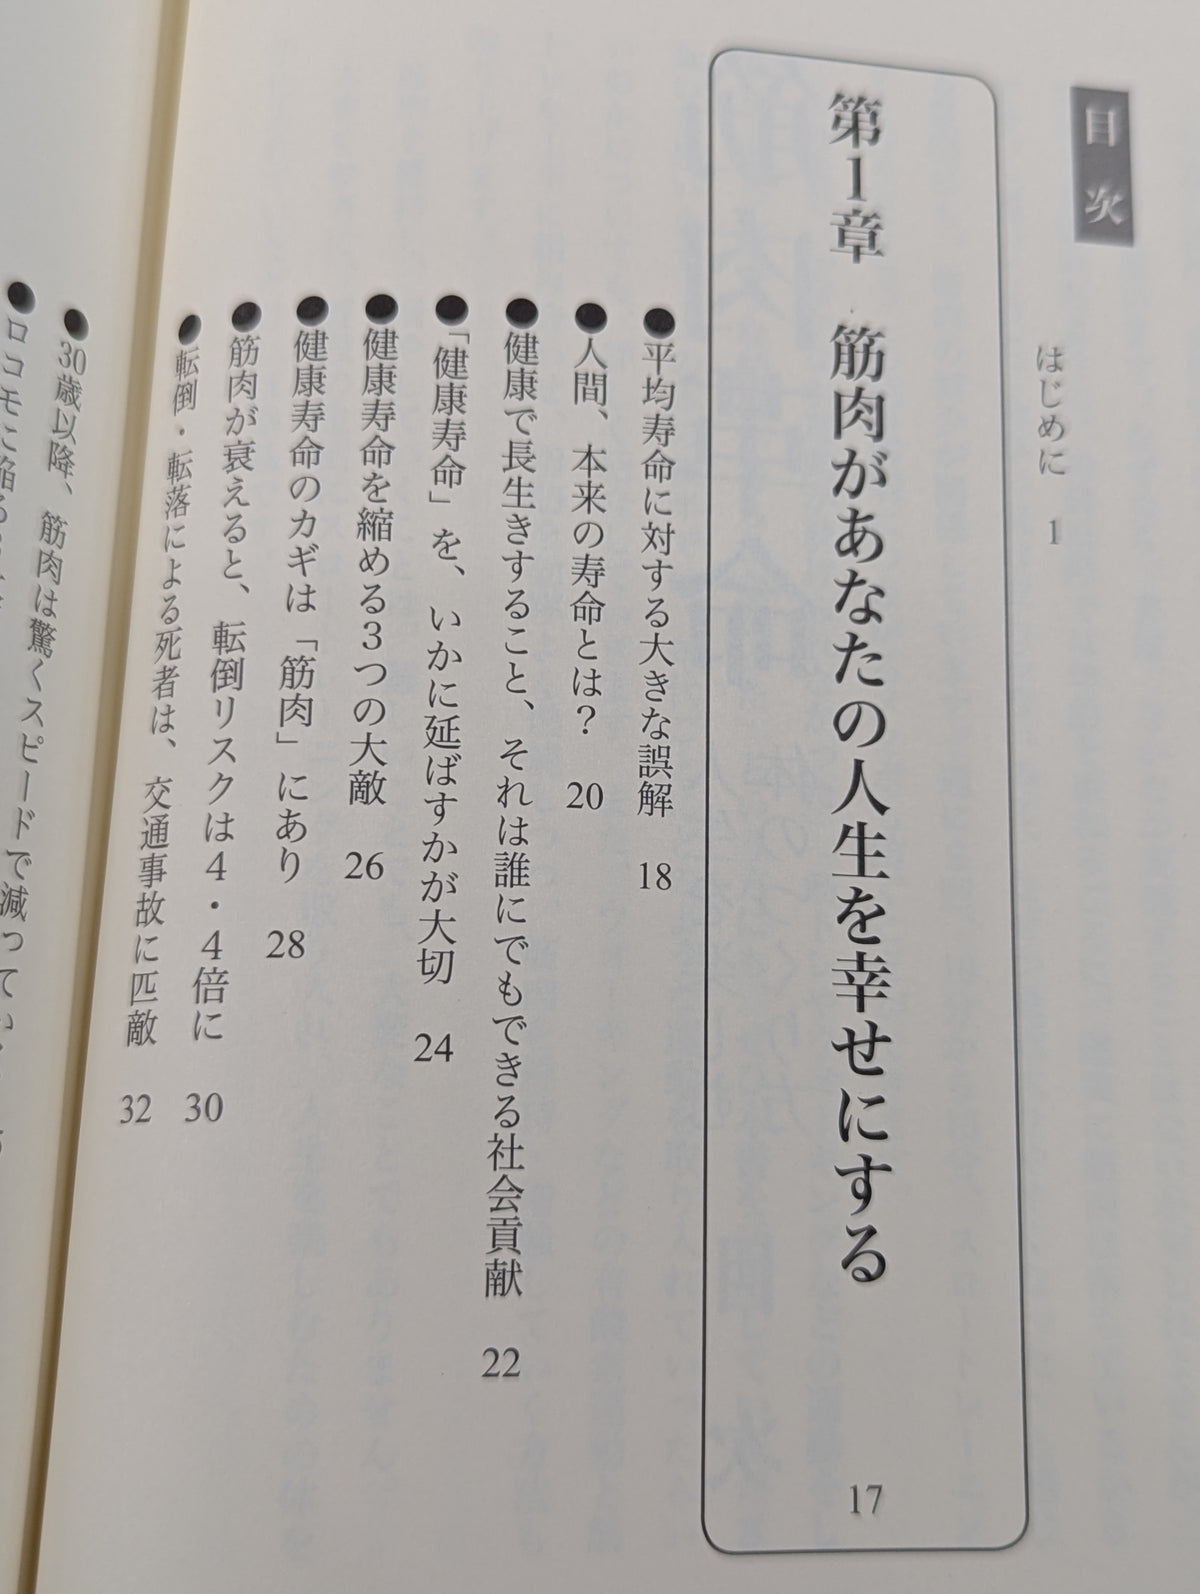 目次
はじめに 1
第1章 筋肉があなたの人生を幸せにする 17
●平均寿命に対する大きな誤解 18
●人間、本来の寿命とは？ 20
●健康で長生きすること、それは誰にでもできる社会貢献 22
●「健康寿命」を、いかに延ばすかが大切 24
●健康寿命を縮める３つの大敵 26
●健康寿命のカギは「筋肉」にあり 28
●筋肉が衰えると、転倒リスクは４・４倍に 30
●転倒・転落による死者は、交通事故に匹敵 32
●30歳以降、筋肉は驚くスピードで減ってい
●ロコモに陥る